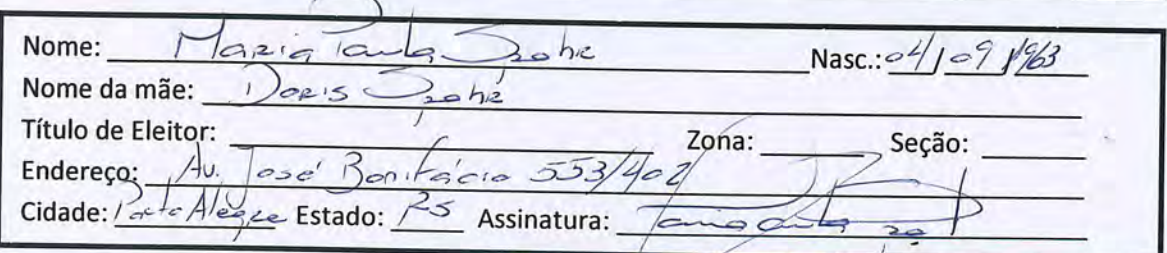 Nome: Maria Paula Spohr Nasc.: 04/09/1963
Nome da mãe: Doris Spohr
Título de Eleitor: Zona: Seção:
Endereço: Av. José Bonifácio 553/402
Cidade: Porto Alegre Estado: RS Assinatura: